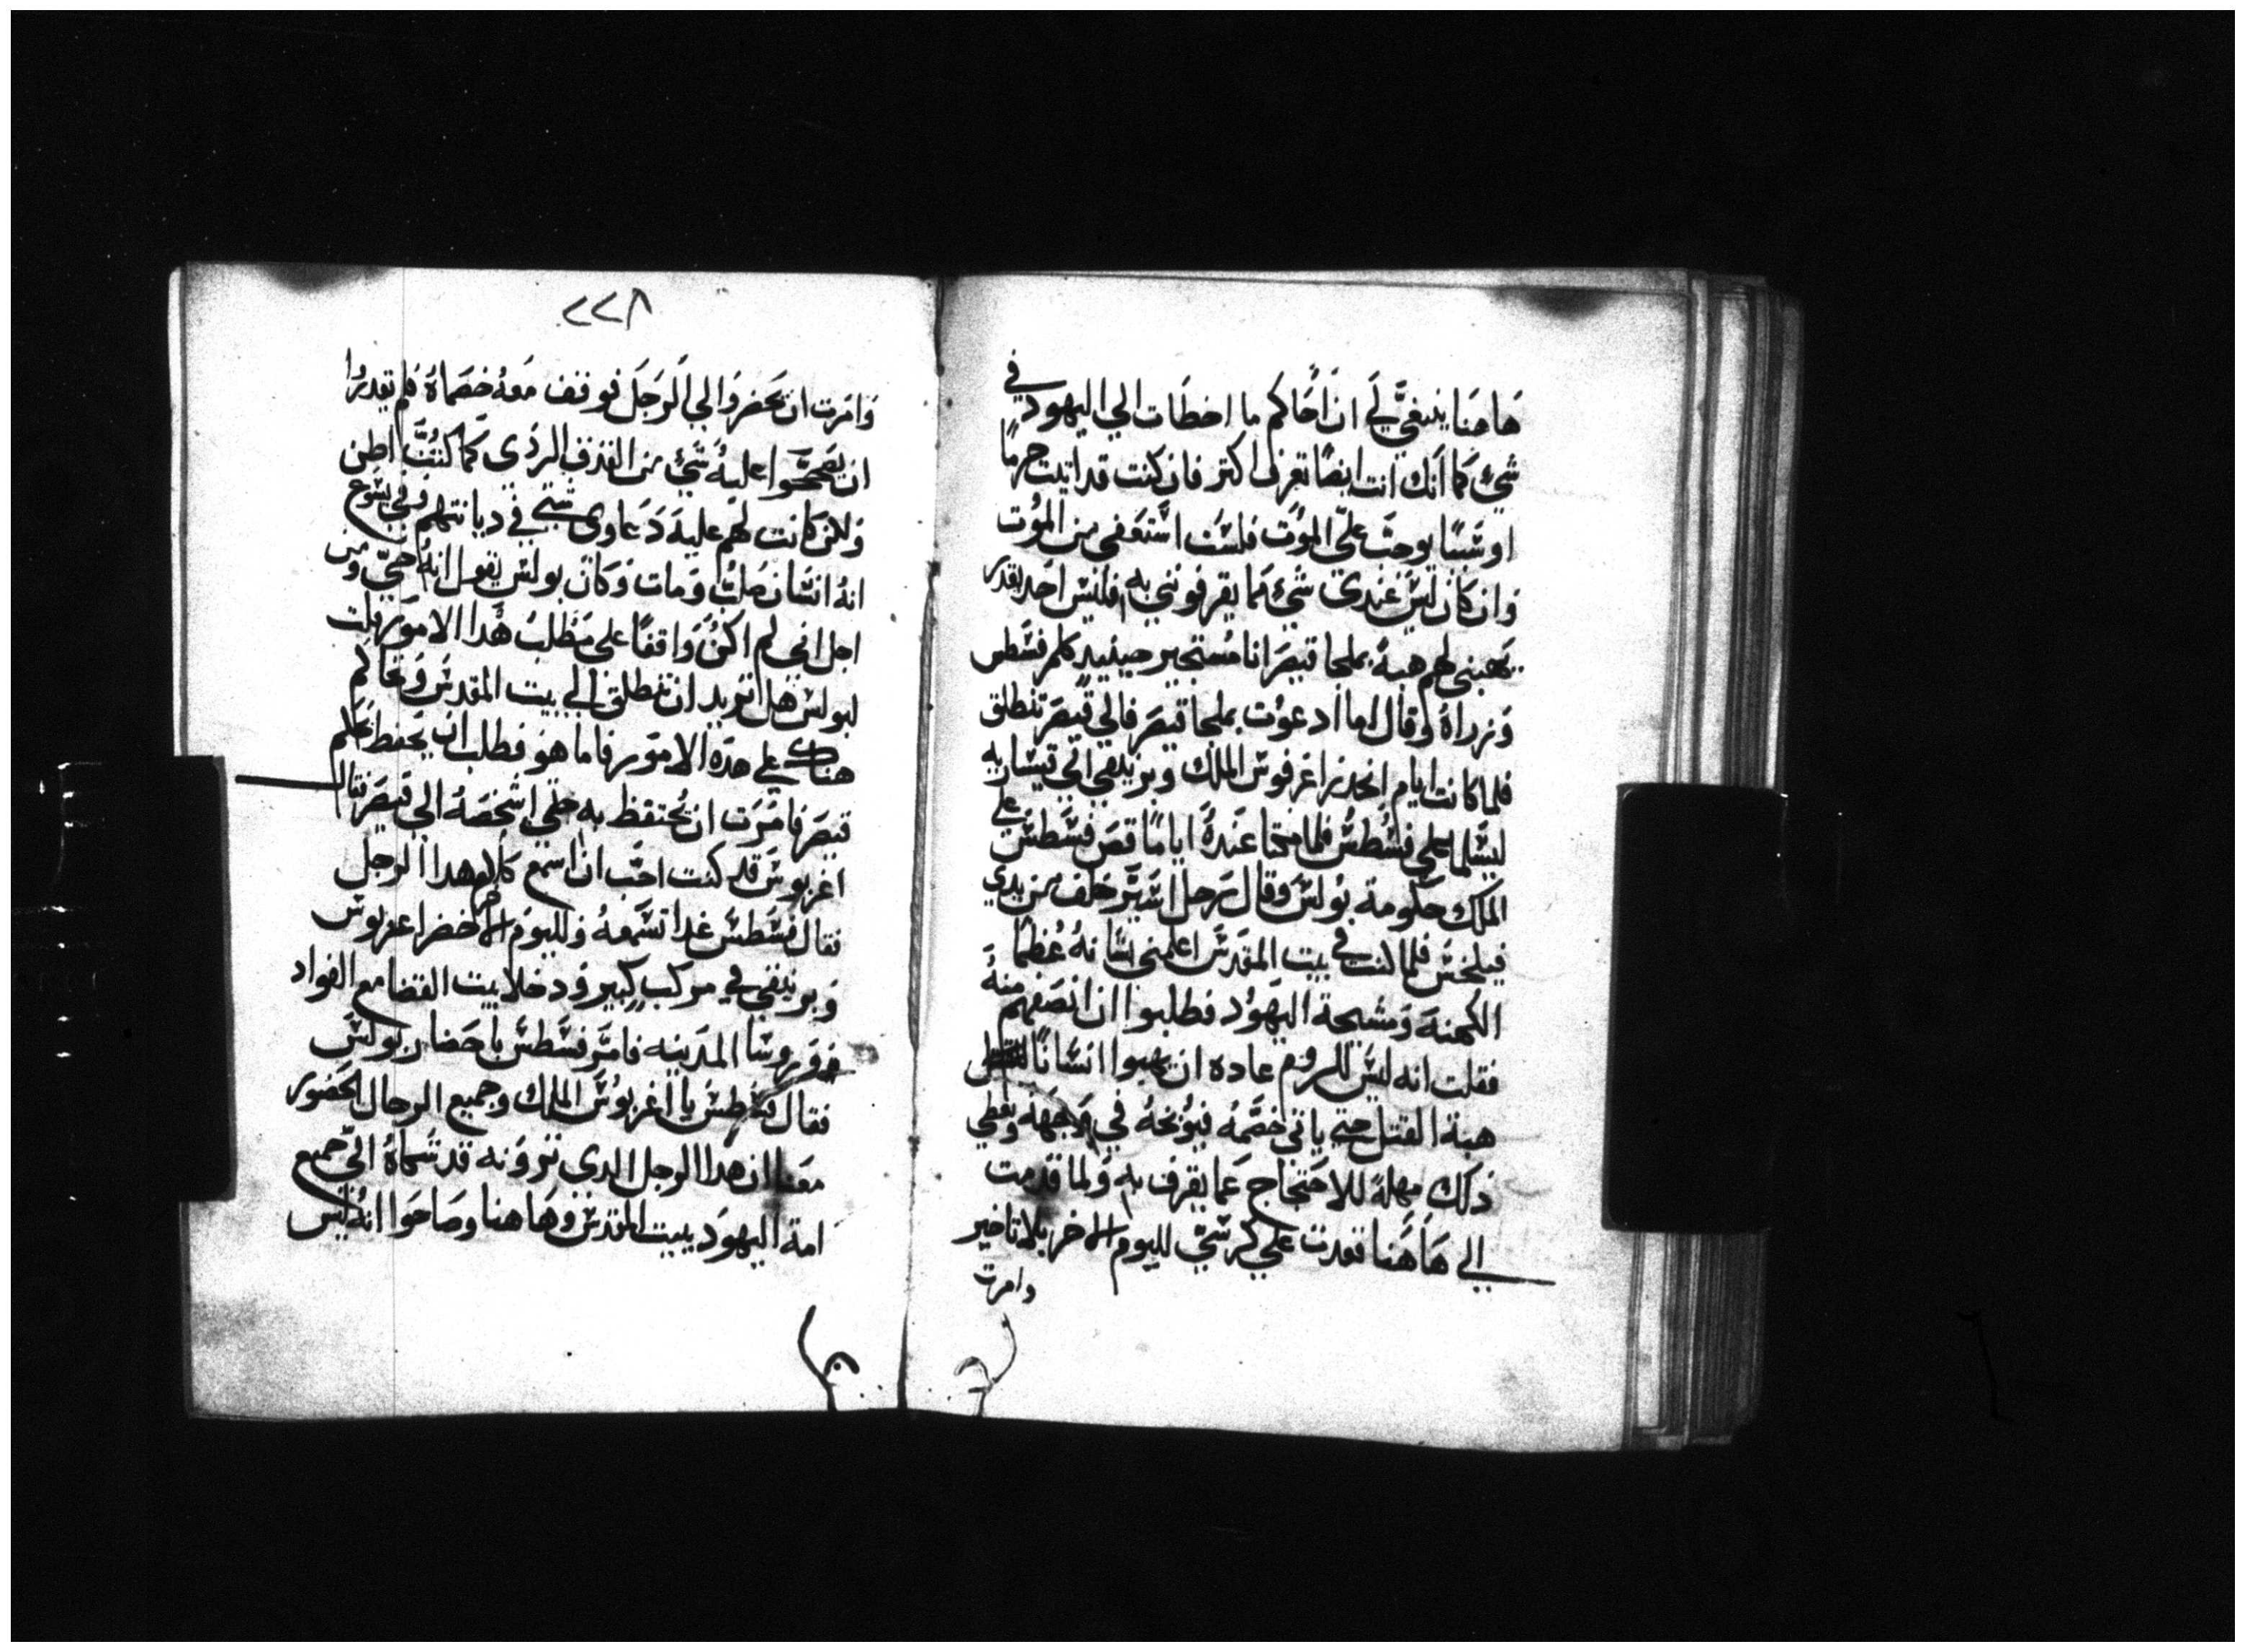 هاهنا ينبغي لي ان احاكم ما اخطات الي اليهود في
شي كما انك انت ايضا تعرف اكتر فان كنت قد اتيت جرما
او شيا يوجب علي الموت فلست استعفي من الموت
وان كان ليس عندي شي مما يقرفوني به فليس احد يقدر
يهبني لهم هبة بملجا قيصر انا مستجير حينيد كلم فسطس
وزراه وقال اما اد عوت بملجا قيصر فالي قيصر تنطلق
فلما كانت ايام انحدر اغرفوس الملك وبرنيقي الي قيساريه
ليسلما علي فسطس فلما مكتا عنده اياما قص فسطس علي
الملك حكومة بولس وقال رجل اسير خلف من يدي
فيلخس فلما كنت في بيت المقدس اعلمني بشانه عظما
الكهنة ومشيخة اليهود فطلبوا ان انصفهم منه
فقلت انه ليس للروم عاده ان يهبوا انسانا للقتل
هبة القتل حتي ياتي خصمه فيوبخه في وجهه ويعطي
دلك مهلة للاحتجاج عما يقرف به ولما قدمت
الي هاهنا قعدت علي كرسي لليوم الاخر بلا تاخير
وامرت
٢٢٨
وامرت ان يحضروا الي الرجل فوقف معه خصماه فلم يقدروا
ان يصححوا عليه شي من القدف الردي كما كنت اظن
ولكن كانت لهم عليه دعاوي شتي في ديانتهم وفي يشوع
انه انسان صلب ومات وكان بولس يقول انه حي ومن
اجل اني لم اكن واقفا علي مطلب هدا الامور قلت
لبولس هل تريد ان تنطلق الي بيت المقدس وتحاكم
هناك علي هده الامور فاما هو فطلب ان يحفظ لحكم
قيصر فامرت ان يحتفظ به حتي اشخصه الي قيصر فقال
اغربوس قد كنت احب ان اسمع كلام هدا الرجل
فقال فسطس غدا تسمعه ولليوم الاخر حضر اغربوس
وبرنيقي في مركب كبير ودخلا بيت القضا مع القواد
وروسا المدينه فامر فسطس باحضار بولس
فقال فسطس يا اغربوس الملك وجميع الرجال الحضور
معنا ان هدا الرجل الدي ترونه قد شكاه الي جميع
امة اليهود ببيت المقدس وهاهنا وصاحوا انه ليس